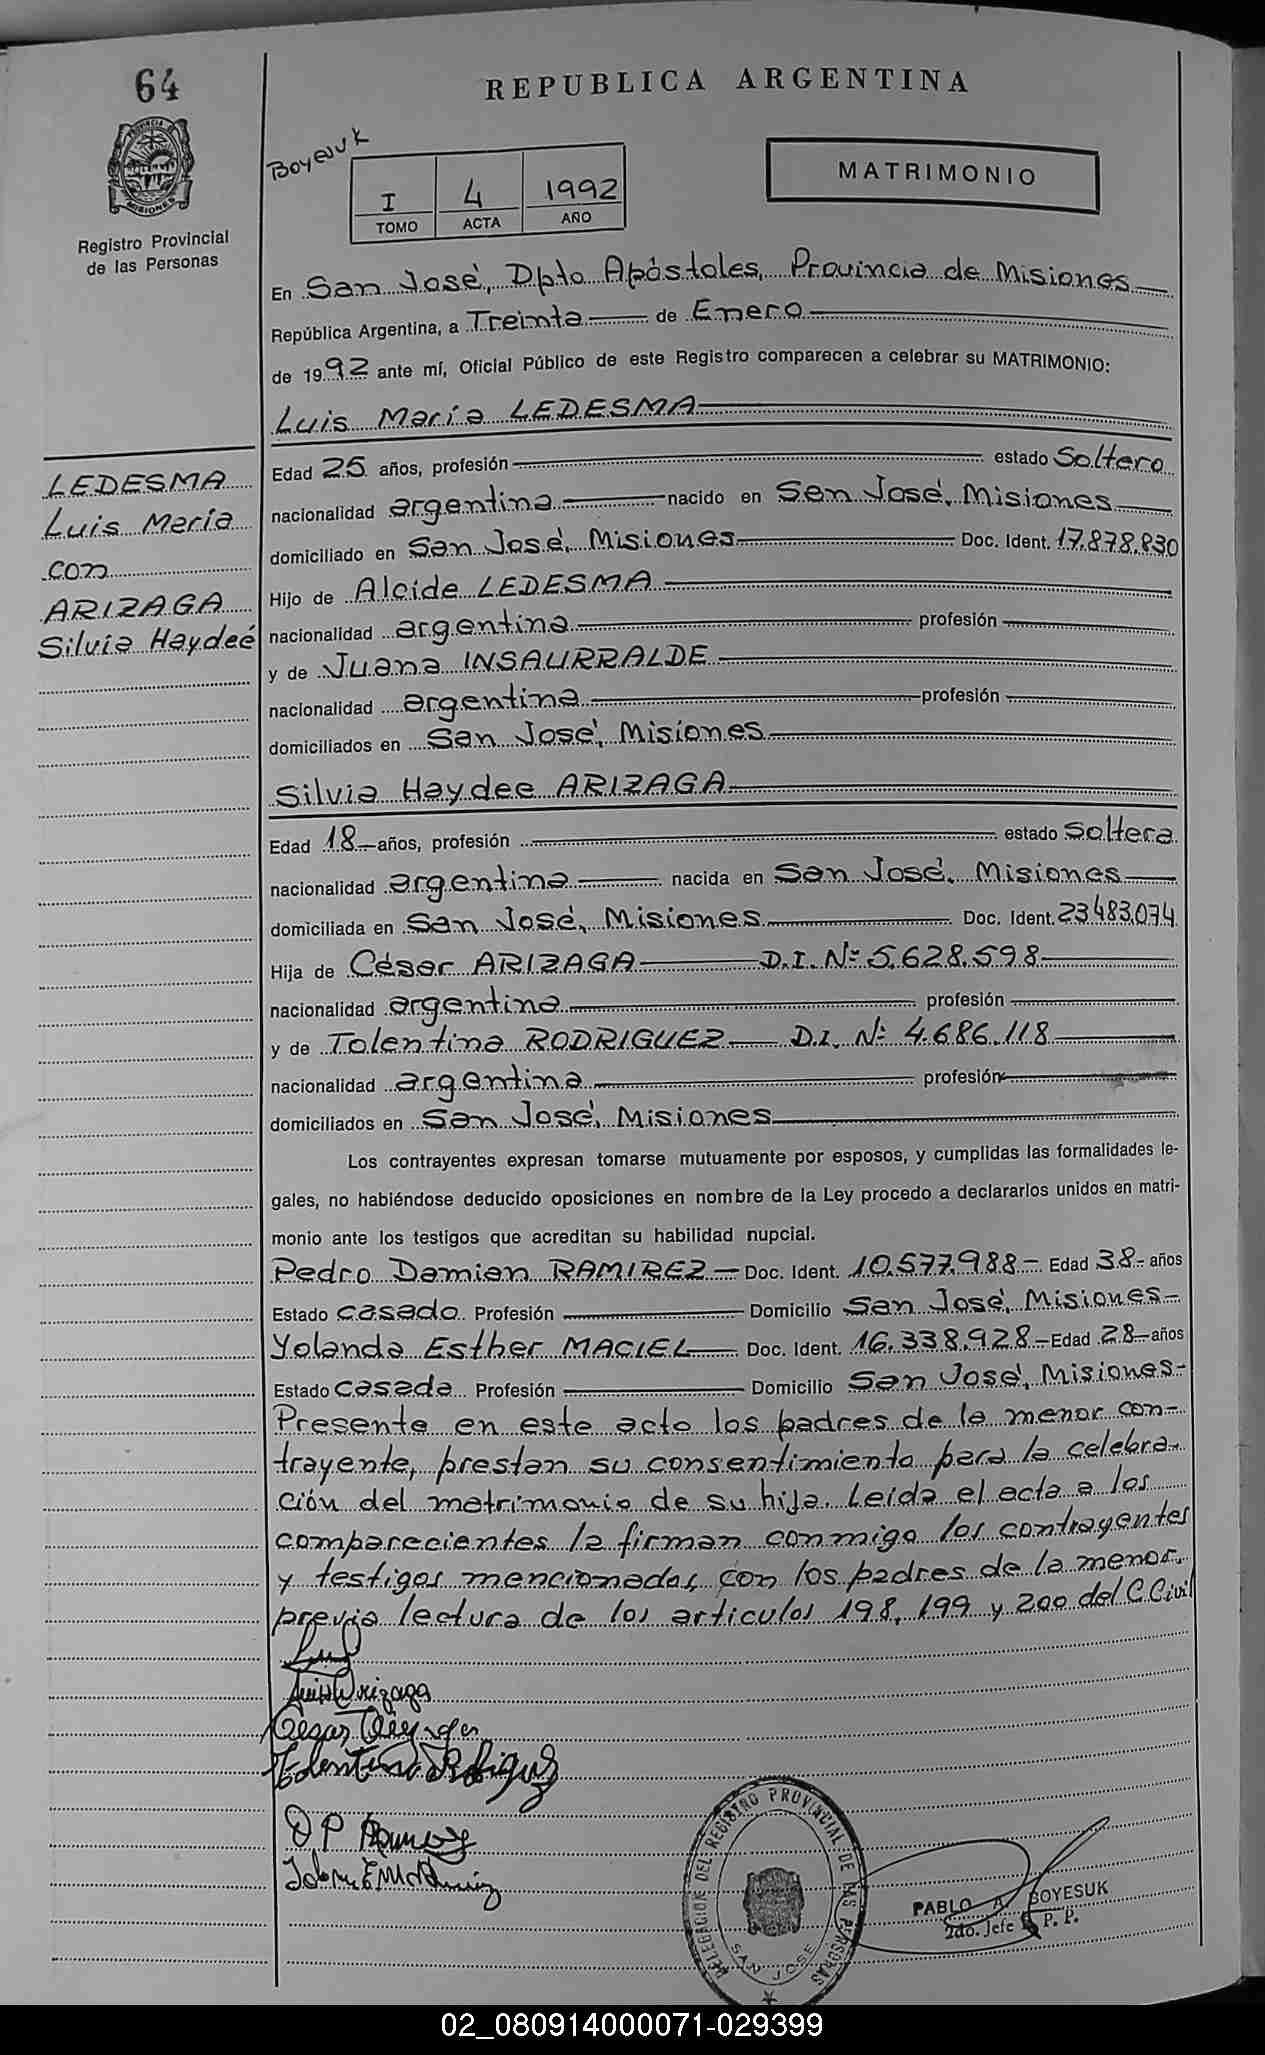 64
REPUBLICA ARGENTINA
PROVINCIA DE MISIONES
Registro Provincial
de las Personas
Boyesuk
I 4 1992
TOMO ACTA AÑO
MATRIMONIO
En San José, Dpto Apóstoles, Provincia de Misiones
República Argentina, a Treinta de Enero
de 1992 ante mí, Oficial Público de este Registro comparecen a celebrar su MATRIMONIO:
Luis María LEDESMA
LEDESMA
Luis María
con
ARIZAGA
Silvia Haydeé
Edad 25 años, profesión estado Soltero
nacionalidad argentina nacido en San José, Misiones
domiciliado en San José, Misiones Doc. Ident. 17.878.830
Hijo de Alcide LEDESMA
nacionalidad argentina profesión
y de Juana INSAURRALDE
nacionalidad argentina profesión
domiciliados en San José, Misiones
Silvia Haydee ARIZAGA
Edad 18 años, profesión estado Soltera
nacionalidad argentina nacida en San José, Misiones
domiciliada en San José, Misiones Doc. Ident. 23.483.074
Hija de César ARIZAGA D.I. Nº 5.628.598
nacionalidad argentina profesión
y de Tolentina RODRIGUEZ D.I. Nº 4.686.118
nacionalidad argentina profesión
domiciliados en San José, Misiones
Los contrayentes expresan tomarse mutuamente por esposos, y cumplidas las formalidades le-
gales, no habiéndose deducido oposiciones en nombre de la Ley procedo a declararlos unidos en matri-
monio ante los testigos que acreditan su habilidad nupcial.
Pedro Damian RAMIREZ Doc. Ident. 10.577.988 Edad 38 años
Estado casado Profesión Domicilio San José, Misiones
Yolanda Esther MACIEL Doc. Ident. 16.338.928 Edad 28 años
Estado casada Profesión Domicilio San José, Misiones
Presente en este acto los padres de la menor con-
trayente, prestan su consentimiento para la celebra-
ción del matrimonio de su hija. Leida el acta a los
comparecientes la firman conmigo los contrayentes
y testigos mencionados, con los padres de la menor
previa lectura de los articulos 198, 199 y 200 del C.Civil
Tolentina Rodriguez
DELEGACION DEL REGISTRO PROVINCIAL DE LAS PERSONAS
SAN JOSE
PABLO A. BOYESUK
2do. Jefe R. P. P.
02_080914000071-029399